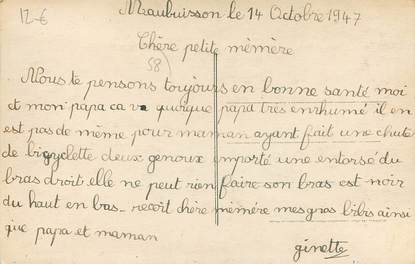 12-€
Maubuisson le 14 Octobre 1947
Chère petite mémère
58)
Nous te pensons toujours en bonne santé moi
et mon papa ca va quoique papa très enrhumé il en
est pas de même pour maman ayant fait une chute
de bigyclette deux genoux emporté une entorse du
bras droit elle ne peut rien faire son bras est noir
du haut en bas_ reçoit chère mémère mes gros bibis ainsi
que papa et maman
ginette